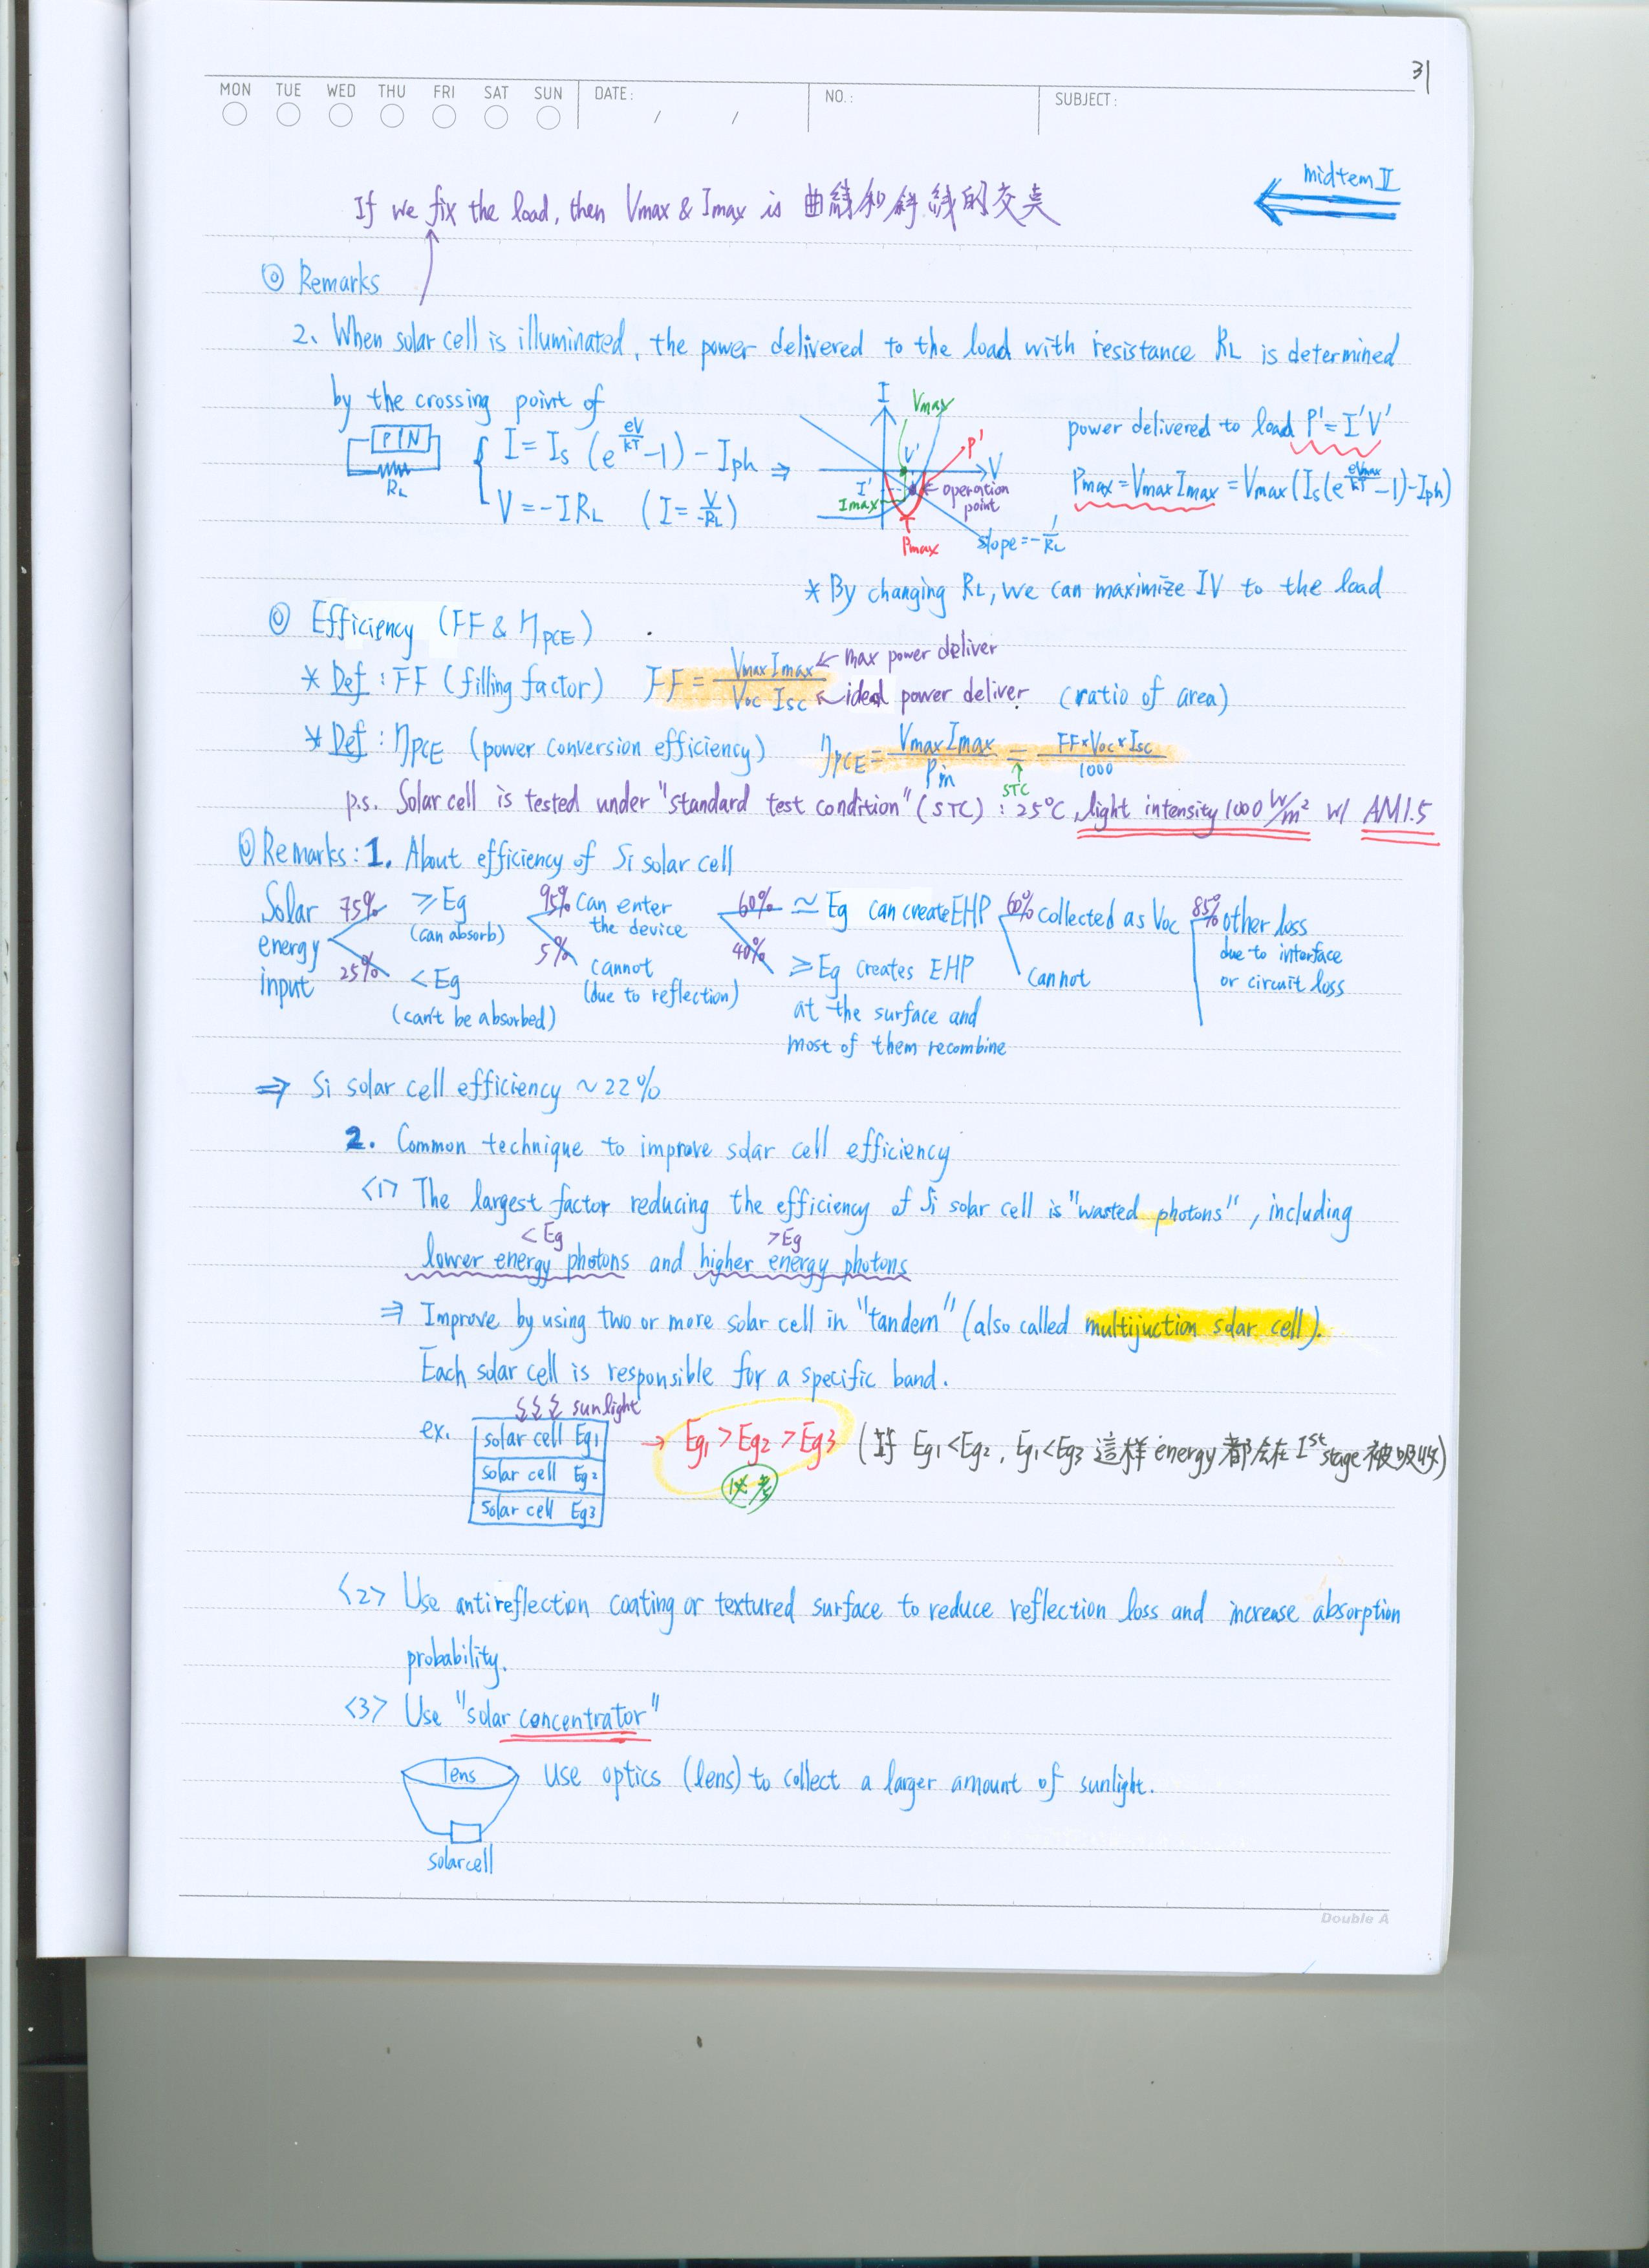 31
MON TUE WED THU FRI SAT SUN DATE: / / NO.: SUBJECT:
midtem II
If we fix the load, then Vmax & Imax is 曲線和斜線的交點
◎ Remarks
2. When solar cell is illuminated, the power delivered to the load with resistance RL is determined
by the crossing point of
PIN
RL
I = Is (e^(eV/kT) -1) - Iph ⇒
V = -IRL (I = V/-RL)
I
Vmax
P'
V'
V
I'
Imax
operation
point
Pmax
slope = -1/RL
power delivered to load P' = I'V'
Pmax = Vmax Imax = Vmax (Is(e^(eVmax/kT) -1) - Iph)
* By changing RL, we can maximize IV to the load
◎ Efficiency (FF & ηPCE)
* Def : FF (filling factor) FF = Vmax Imax / Voc Isc ← max power deliver ← ideal power deliver. (ratio of area)
* Def : ηPCE (power conversion efficiency) ηPCE = Vmax Imax / Pin = FF×Voc×Isc / 1000
STC
p.s. Solar cell is tested under "standard test condition" (STC) : 25°C, light intensity 1000 W/m² w/ AM1.5
◎ Remarks : 1. About efficiency of Si solar cell
Solar energy input
75% ≥Eg (can absorb)
25% <Eg (can't be absorbed)
95% can enter the device
5% cannot (due to reflection)
60% ≃ Eg can create EHP
40% ≥Eg creates EHP
at the surface and
most of them recombine
60% collected as Voc
cannot
85% other loss
due to interface
or circuit loss
⇒ Si solar cell efficiency ~22%
2. Common technique to improve solar cell efficiency
<1> The largest factor reducing the efficiency of Si solar cell is "wasted photons", including
<Eg >Eg
lower energy photons and higher energy photons
⇒ Improve by using two or more solar cell in "tandem" (also called multijuction solar cell).
Each solar cell is responsible for a specific band.
sunlight
ex.
solar cell Eg1
solar cell Eg2
solar cell Eg3
→ Eg1 > Eg2 > Eg3 (若 Eg1<Eg2, Eg1<Eg3 這樣 energy 都會在 1st stage 被吸收)
必考
<2> Use antireflection coating or textured surface to reduce reflection loss and increase absorption
probability.
<3> Use "solar concentrator"
lens
solar cell
use optics (lens) to collect a larger amount of sunlight.
Double A